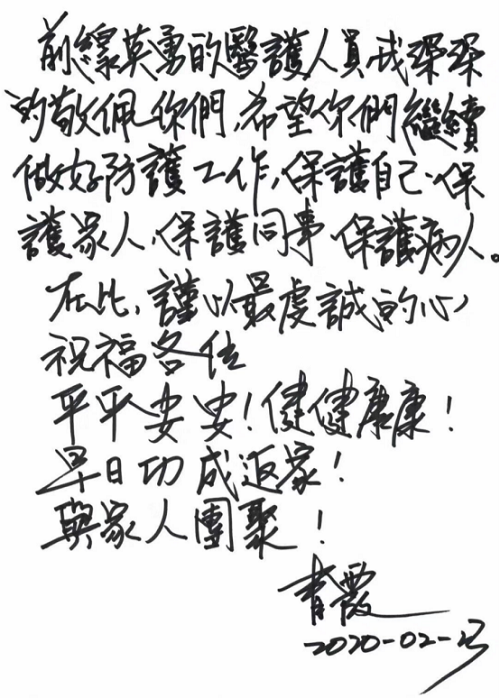 前線英勇的醫護人員,我深深
的敬佩你們,希望你們繼續
做好防護工作,保護自己、保
護家人、保護同事、保護病人。
在此,謹以最虔誠的心,
祝福各位
平平安安!健健康康!
早日功成返家!
與家人團聚!
青霞
2020-02-